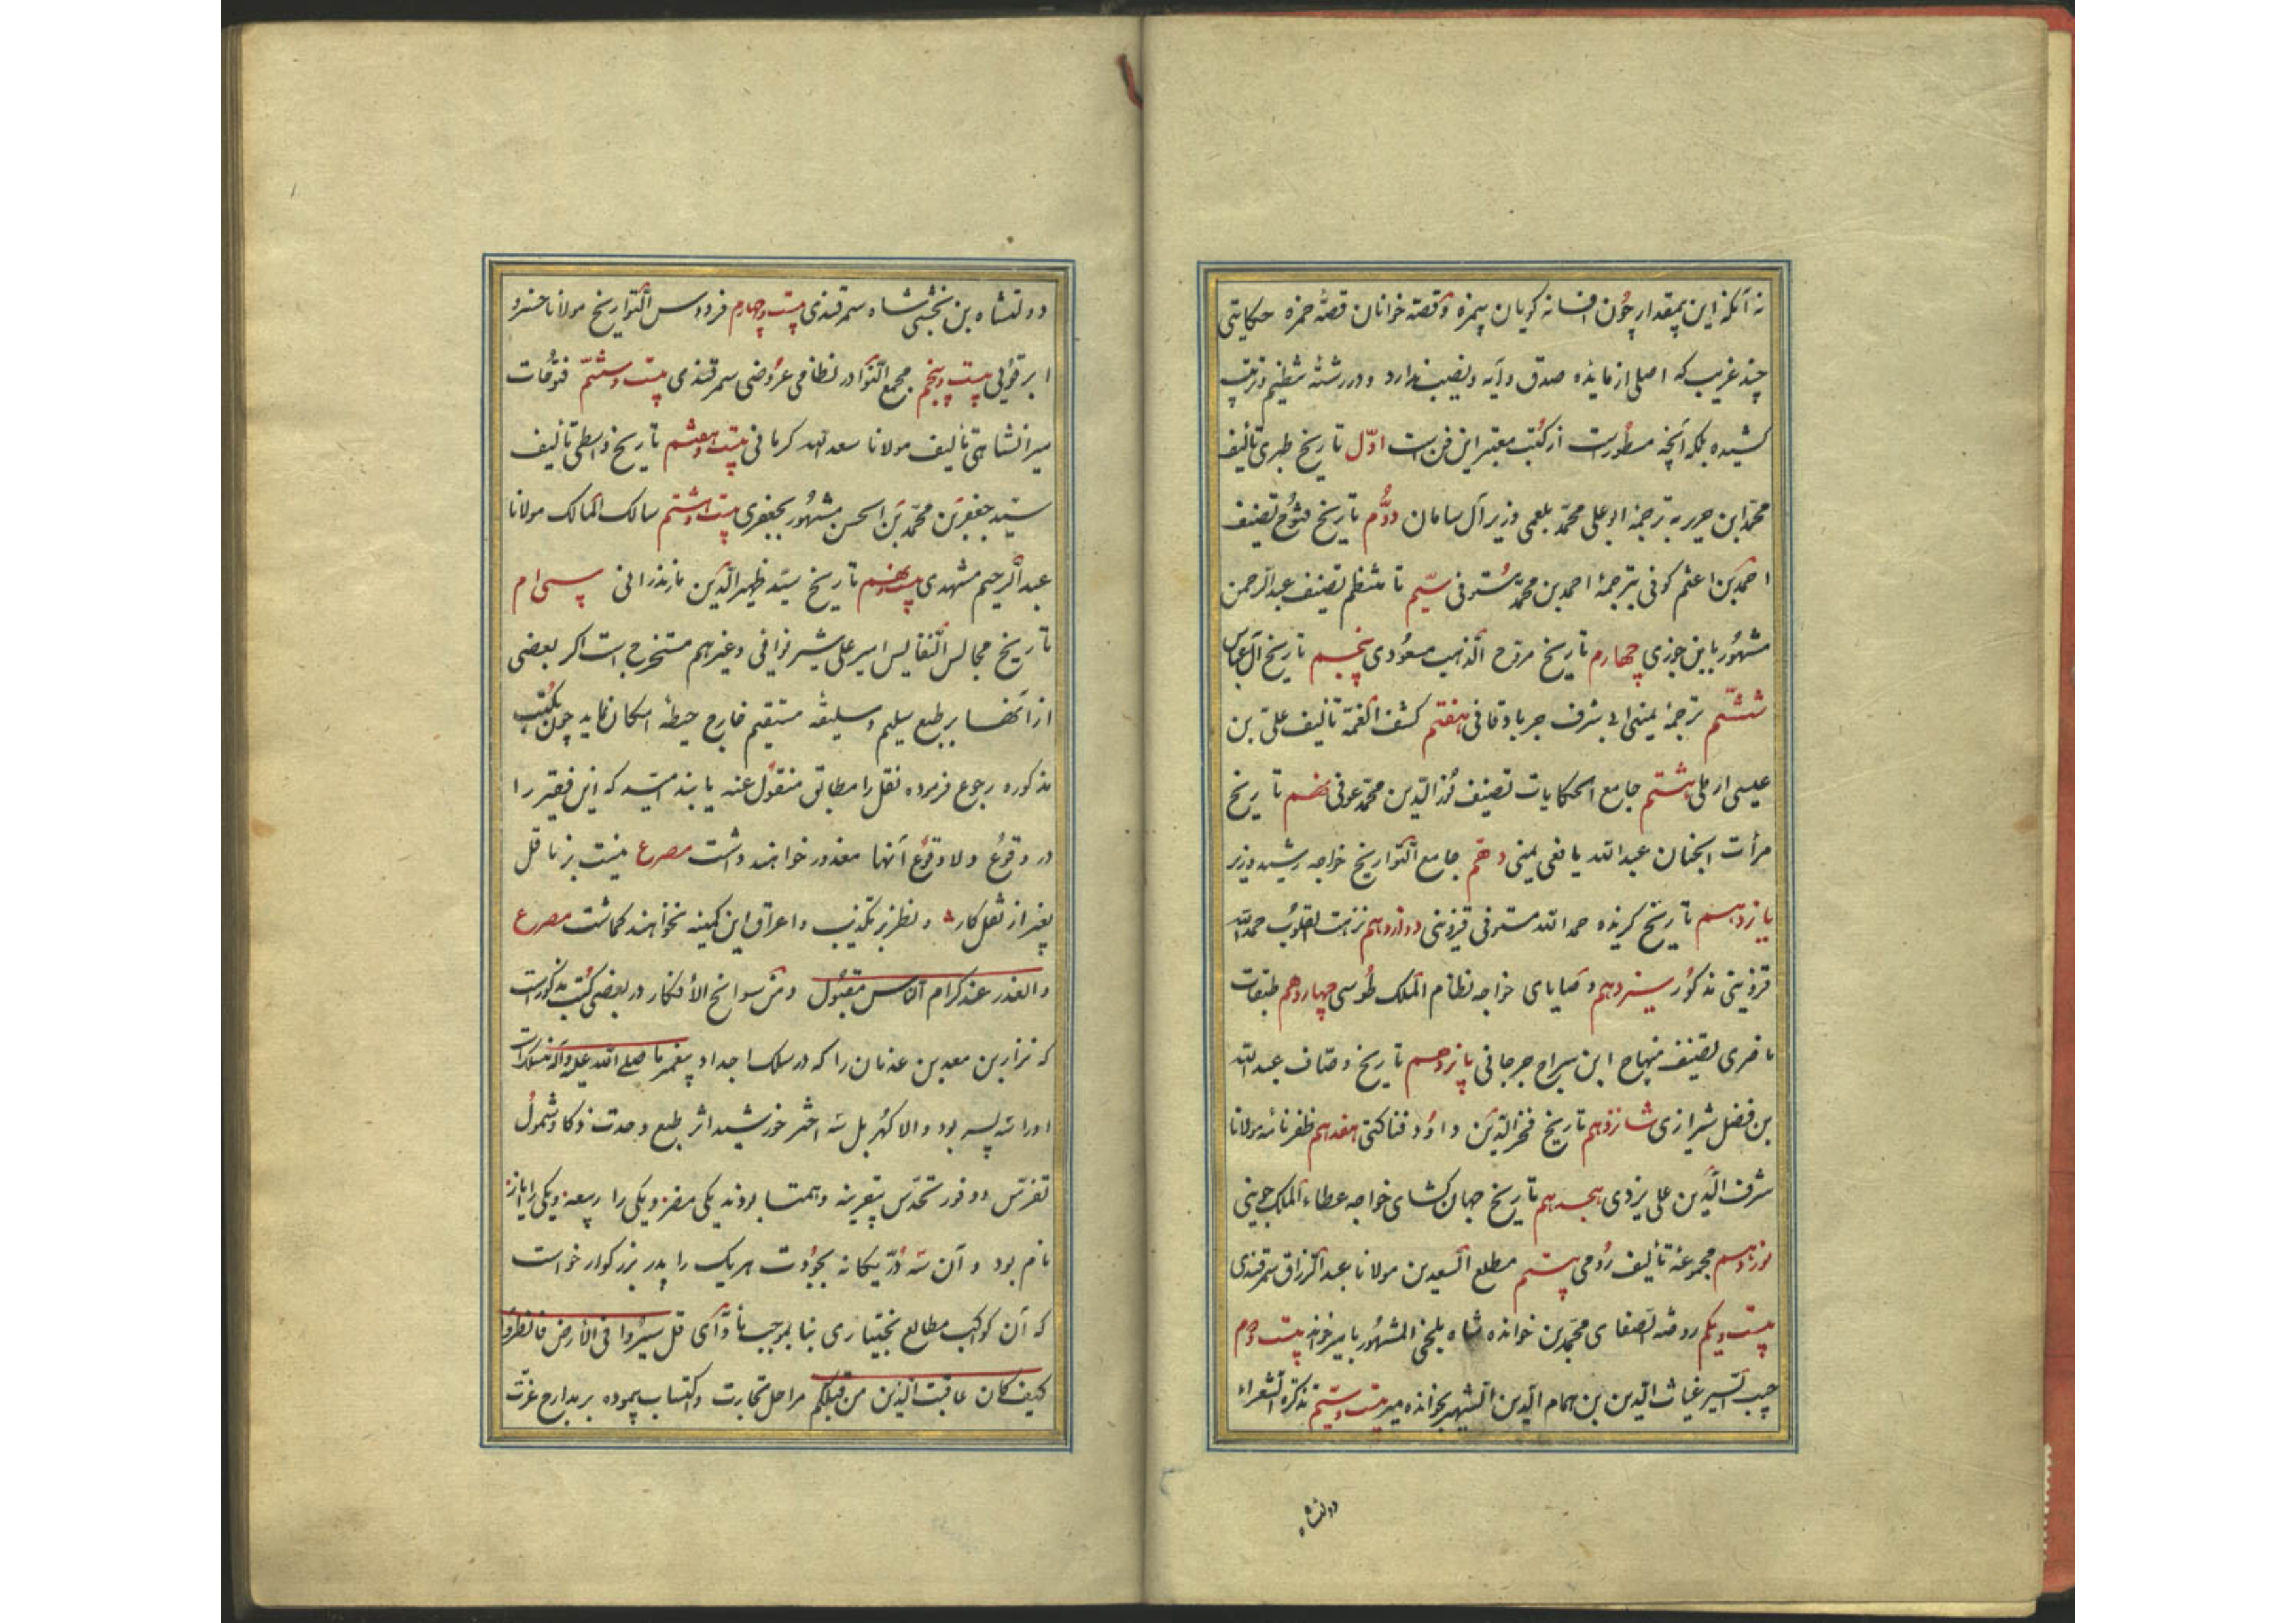 نه آنکه این بیمقدار چون افسانه گویان بیمزه و قصه خوانان قصهٔ حمزه حکایتی
چند غریب که اصلی از مایده صدق و آیه و نصیب ندارد و در رشته تنظیم و ترتیب
کشیده بلکه آنچه مسطورست از کتب معتبر این فن ست اوّل تاریخ طبری تألیف
محمّد ابن جریر به ترجمهٔ ابو علی محمّد بلعمی وزیر آل سامان دوُّم تاریخ فتوح تصنیف
احمد بن اعثم کوفی بترجمهٔ احمد بن محمّد مستوفی سیّم تا منتظم تصنیف عبد الرحمن
مشهُور بابن جوزی چهارم تاریخ مروج الذهب مسعُودی پنجم تاریخ آل عباس
ششّم ترجمهٔ یمینی ابی شرف جربادقانی هفتم کشف الغمّه تألیف علی بن
عیسی اربلی هشتم جامع الحکایات تصنیف نُور الدّین محمّد عوفی نهم تاریخ
مرأت الجنان عبد الله یافعی یمنی دهم جامع التّواریخ خواجه رشید وزیر
یازدهم تاریخ گزیده حمد الله مستوفی قزوینی دوازدهم نزهت القلوُب حمد الله
قزوینی مذکُور سیزدهم وصایای خواجه نظام الملک طُوسی چهاردهم طبقات
ناصری تصنیف منهاج ابن سراج جرجانی پانزدهم تاریخ وصّاف عبد الله
بن فضل شیرازی شانزدهم تاریخ فخر الدّین داوُد فناکتی هفدهم ظفرنامهٔ مولانا
شرف الدّین علی یزدی هجدهم تاریخ جهان کشای خواجه عطاء الملک جوینی
نوزدهم مجموعهٔ تألیف رُومی بیستم مطلع السعدین مولانا عبد الرزاق سمرقندی
بیست و یکم روضة الصّفای محمّد بن خوانده شاه بلخی المشهُور بامیر خوند بیست و دوم
حبیب السیر غیاث الدّین بن همام الدّین الشهیر بخوانده میر بیست و سیّم تذکرة الشعراء
دولتشاه
دولتشاه بن بخشی شاه سمرقندی بیست و چهارم فردوس التّواریخ مولانا خسرو
ابرقوُیی بیست و پنجم مجمع النّوادر نظامی عرُوضی سمرقندی بیست و ششّم فتوُحات
میرانشاهی تألیف مولانا سعد الله کرمانی بیست و هفتم تاریخ واسطی تألیف
سیّد جعفر بن محمّد بن الحسن مشهُور بجعفری بیست و هشتم مسالک الممالک مولانا
عبد الرحیم مشهدی بیست و نهم تاریخ سیّد ظهیر الدّین مازندرانی سی ام
تاریخ مجالس النّفایس امیر علی شیر نوائی و غیرهم مستخرج است اکر بعضی
از آنها بر طبع سلیم و سلیقهٔ مستقیم خارج حیطهٔ امکان نماید چون بکتُب
مذکوره رجوع فرموده نقل را مطابق منقول عنه یابند امیّد که این فقیر را
در وقوُع و لا وقوُع آنها معذور خواهند داشت مصرع نیست بر ناقل
بغیر از نقل کار و نظر بر تکذیب و اغراق این کمینه نخواهند کماشت مصرع
والعذر عند کرام النّاس مقبُول و من سوانح الأفکار در بعضی کُتب مذکورست
که نزار بن معد بن عدنان را که در سلک اجداد پیغمبر ما صلی الله علیه و آله منسلک است
او را سه پسر بود والا کهُر بل سه اختر خورشید اثر بطبع و حدت ذکا و شمُول
تفرّس و وفور تحدّس بیقرینه و همتا بودند یکی مضر و یکی را ربیعه و یکی را ایاز
نام بود و آن سه دُرّ یکانه بجوُدت هر یک را پدر بزرکوار خواست
که آن کوکب مطالع بختیاری بنا بموجب مأوّای قل سیرُوا فی الارض فانظرُوا
کیف کان عاقبت الّذین من قبلکم مراحل تجارت و اکتساب پیموده بر مدارج عزّت